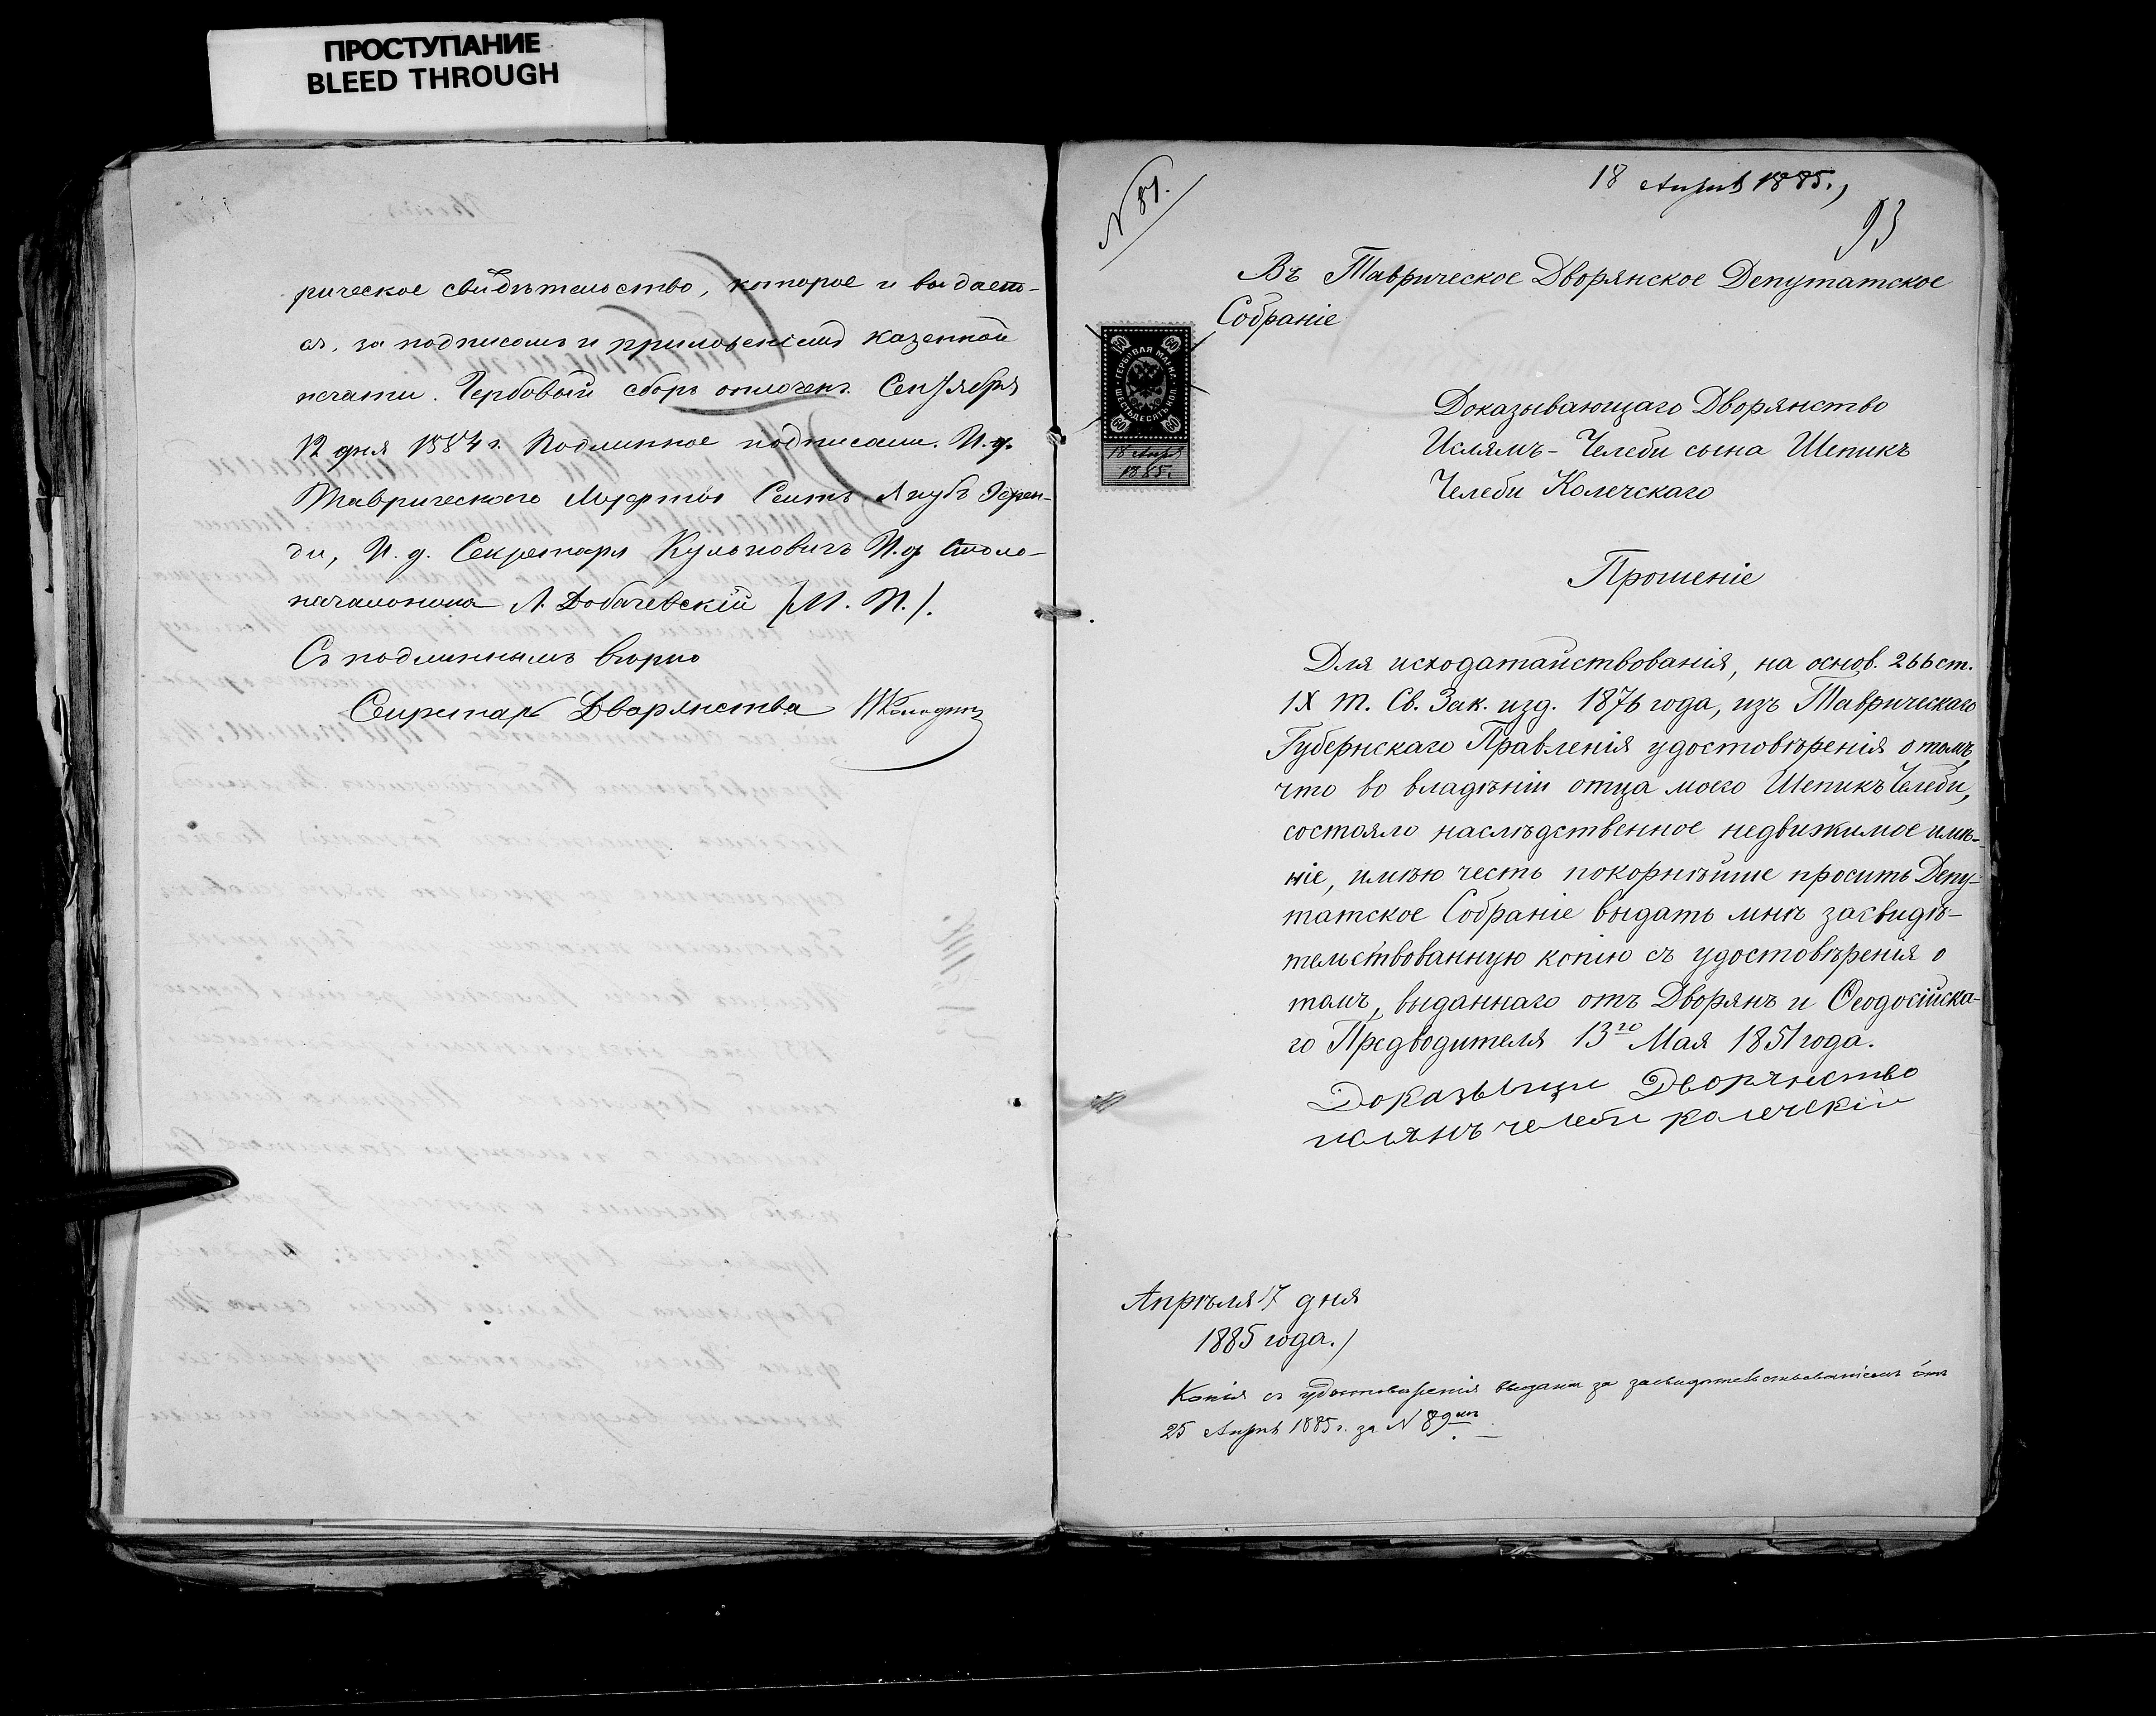 ПРОСТУПАНИЕ
BLEED THROUGH
рическое свидѣтельство, которое и выдает-
ся, за подписомъ и приложеніемъ казенной
печати. Гербовый сборъ оплоченъ. Сентября
12 дня 1884 г. Подлинное подписали. И. д.
Таврическаго Муфтія Сеитъ Ягубъ Эфен-
ди, И. д. Секретаря Кульповичъ И. д. Столо-
начальника Л. Добачевскій (М. П.).
Съ подлиннымъ вѣрно
Секретарь Дворянства
N 81.
18 Апрѣ 1885.,
93
Въ Таврическое Дворянское Депутатское
Собраніе
60 60
ГЕРБОВАЯ МАРКА
ШЕСТЬДЕСЯТЪ КОП.
60 60
18 Апрѣ
1885.
Доказывающаго Дворянство
Ислямъ-Челеби сына Шепикъ
Челеби Колечскаго
Прошеніе
Для исходатайствованія, на основ. 266 ст.
IX т. Св. Зак. изд. 1876 года, изъ Таврическаго
Губернскаго Правленія удостовѣренія о томъ,
что во владѣніи отца моего Шепикъ Челеби,
состояло наслѣдственное недвижимое имѣ-
ніе, имѣю честь покорнѣйше просить Депу-
татское Собраніе выдать мнѣ засвидѣ-
тельствованную копію съ удостовѣренія о
томъ, выданнаго отъ Дворянъ и Ѳеодосійска-
го Предводителя 13го Мая 1851 года.
Дворянство
ислямъ челеби колечскій
Апрѣля 17 дня
1885 года.)
Копія съ удостовѣренія выдана за засвидѣтельствованіемъ отъ
25 Апрѣ 1885 г. за N 89